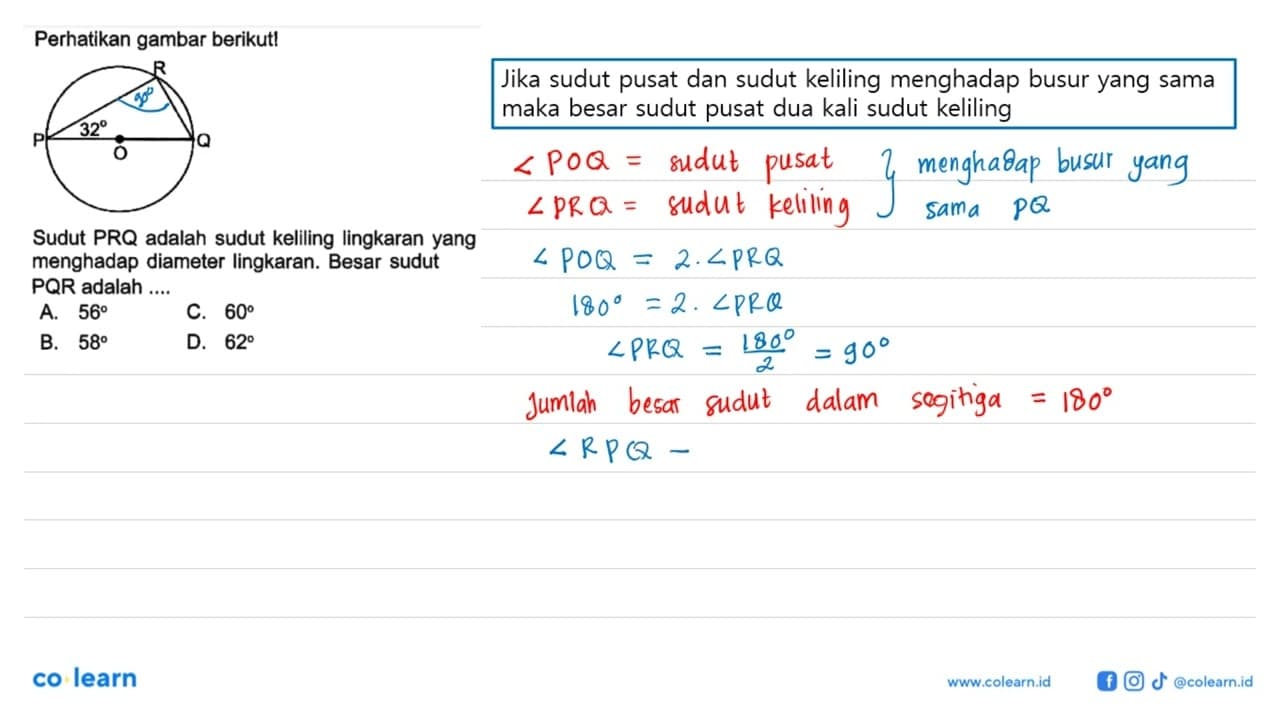 Perhatikan gambar berikut!
R
90°
P
32°
O
Q
Sudut PRQ adalah sudut keliling lingkaran yang
menghadap diameter lingkaran. Besar sudut
PQR adalah ....
A. 56° C. 60°
B. 58° D. 62°
Jika sudut pusat dan sudut keliling menghadap busur yang sama
maka besar sudut pusat dua kali sudut keliling
∠POQ = sudut pusat } menghadap busur yang
∠PRQ = sudut keliling sama PQ
∠POQ = 2.∠PRQ
180° = 2. ∠PRQ
∠PRQ = 180°/2 = 90°
Jumlah besar sudut dalam segitiga = 180°
∠RPQ –
co·learn
www.colearn.id
@colearn.id